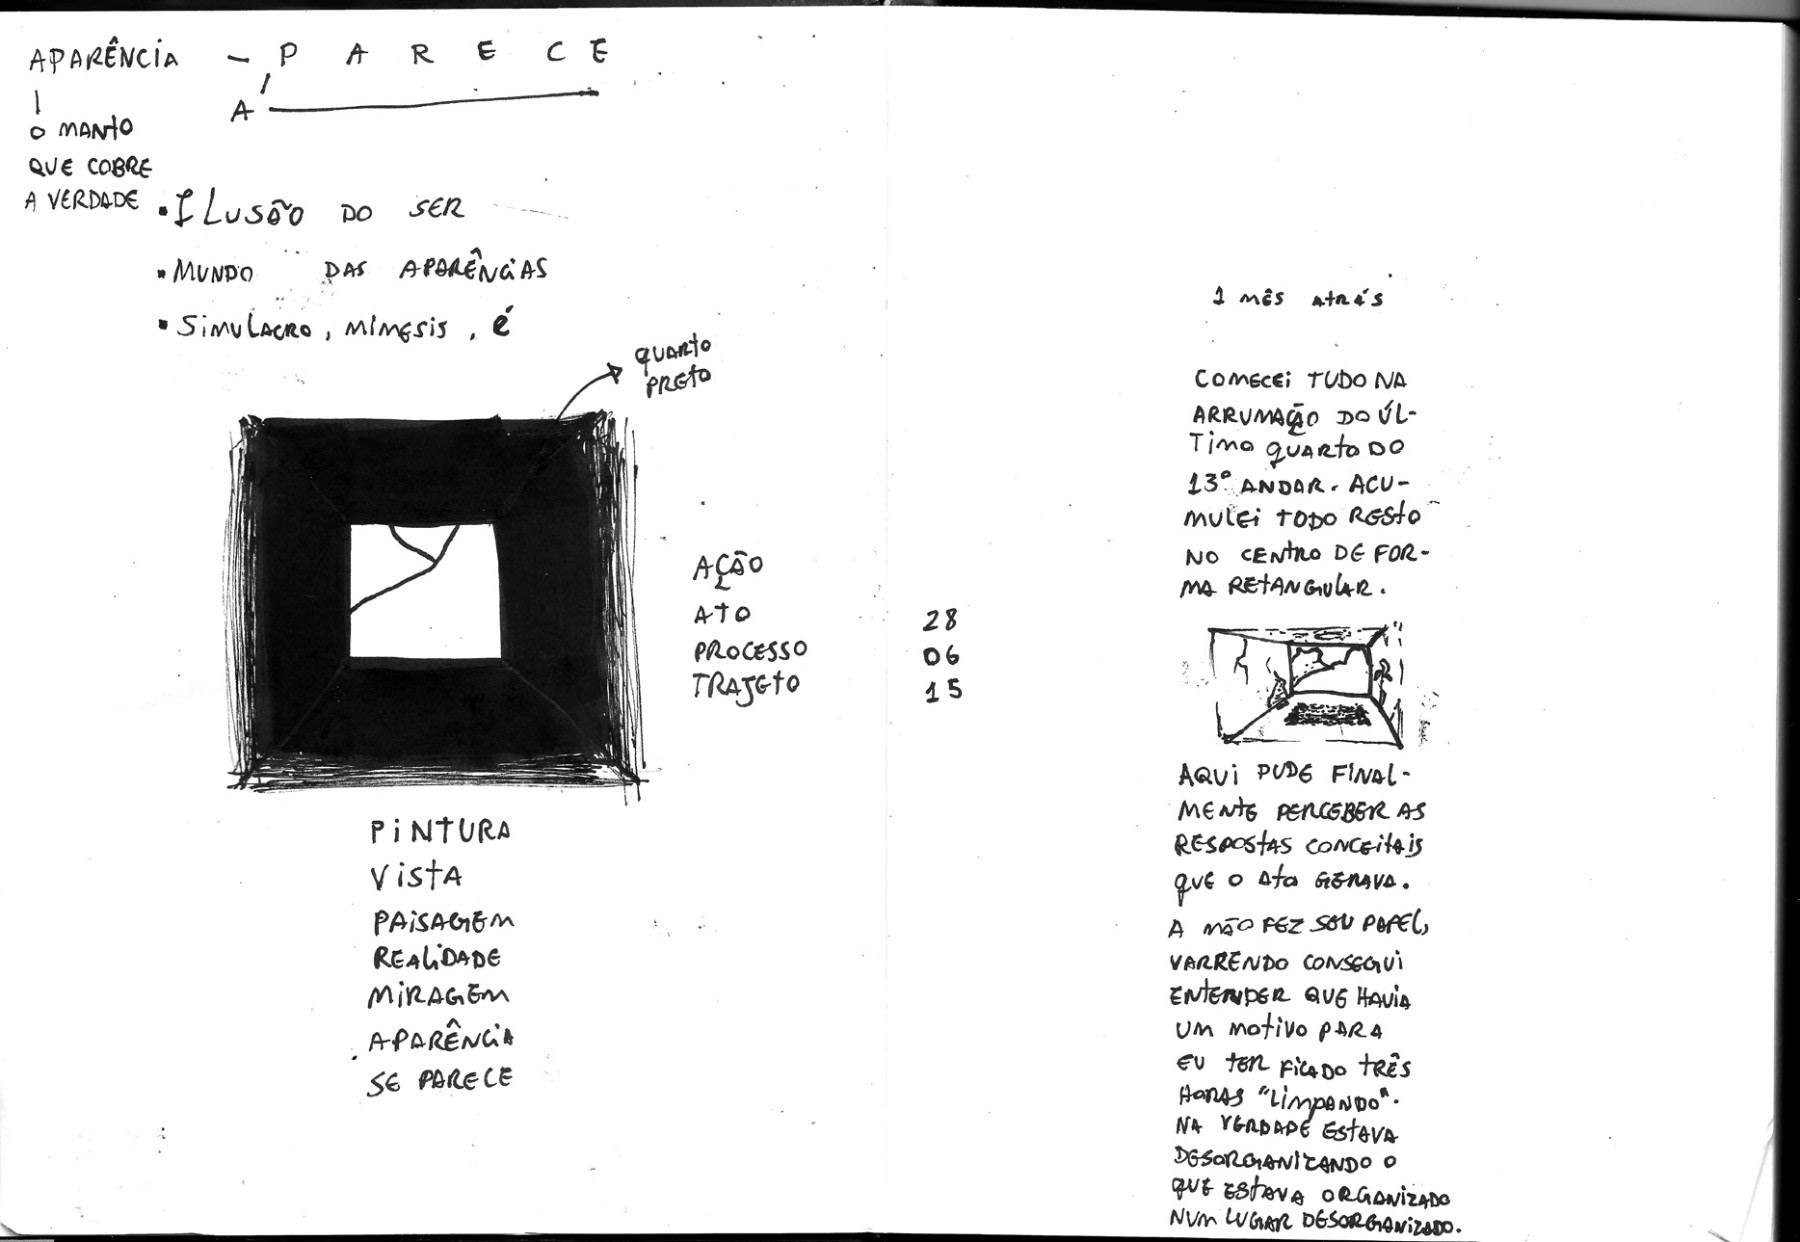 APARÊNCIA - P A R E C E
A
O MANTO
QUE COBRE
A VERDADE
• ILUSÃO DO SER
• MUNDO DAS APARÊNCIAS
• SIMULACRO, MIMESIS, É
QUARTO
PRETO
AÇÃO
ATO
PROCESSO
TRAJETO
PINTURA
VISTA
PAISAGEM
REALIDADE
MIRAGEM
APARÊNCIA
SE PARECE
28
06
15
1 MÊS ATRÁS
COMECEI TUDO NA
ARRUMAÇÃO DO ÚL-
TIMO QUARTO DO
13º ANDAR. ACU-
MULEI TODO RESTO
NO CENTRO DE FOR-
MA RETANGULAR.
AQUI PUDE FINAL-
MENTE PERCEBER AS
RESPOSTAS CONCEITAIS
QUE O ATO GERAVA.
A MÃO FEZ SEU PAPEL,
VARRENDO CONSEGUI
ENTENDER QUE HAVIA
UM MOTIVO PARA
EU TER FICADO TRÊS
HORAS "LIMPANDO".
NA VERDADE ESTAVA
DESORGANIZANDO O
QUE ESTAVA ORGANIZADO
NUM LUGAR DESORGANIZADO.